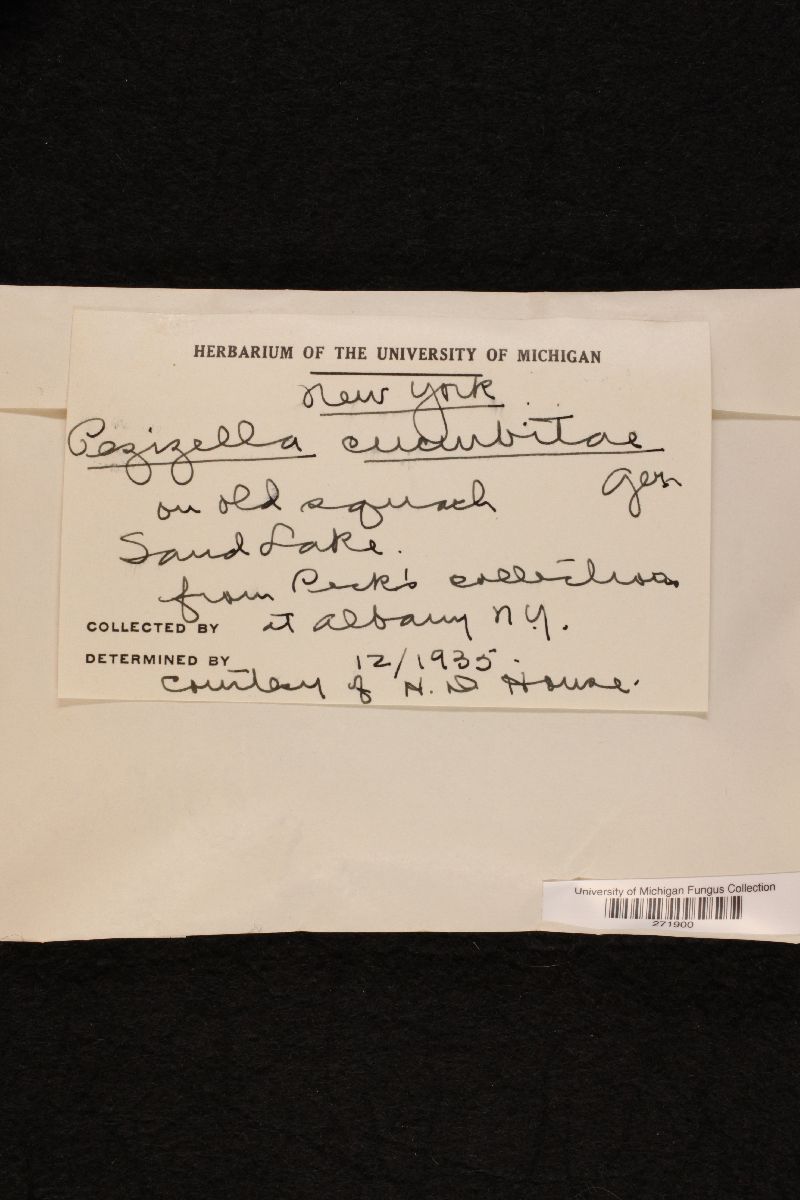 HERBARIUM OF THE UNIVERSITY OF MICHIGAN
New York
Pezizella cucurbitae
Ger
on old squash
Sand Lake.
from Peck's collection
COLLECTED BY at Albany N.Y.
DETERMINED BY 12/1935.
courtesy of H. D House.
University of Michigan Fungus Collection
271900